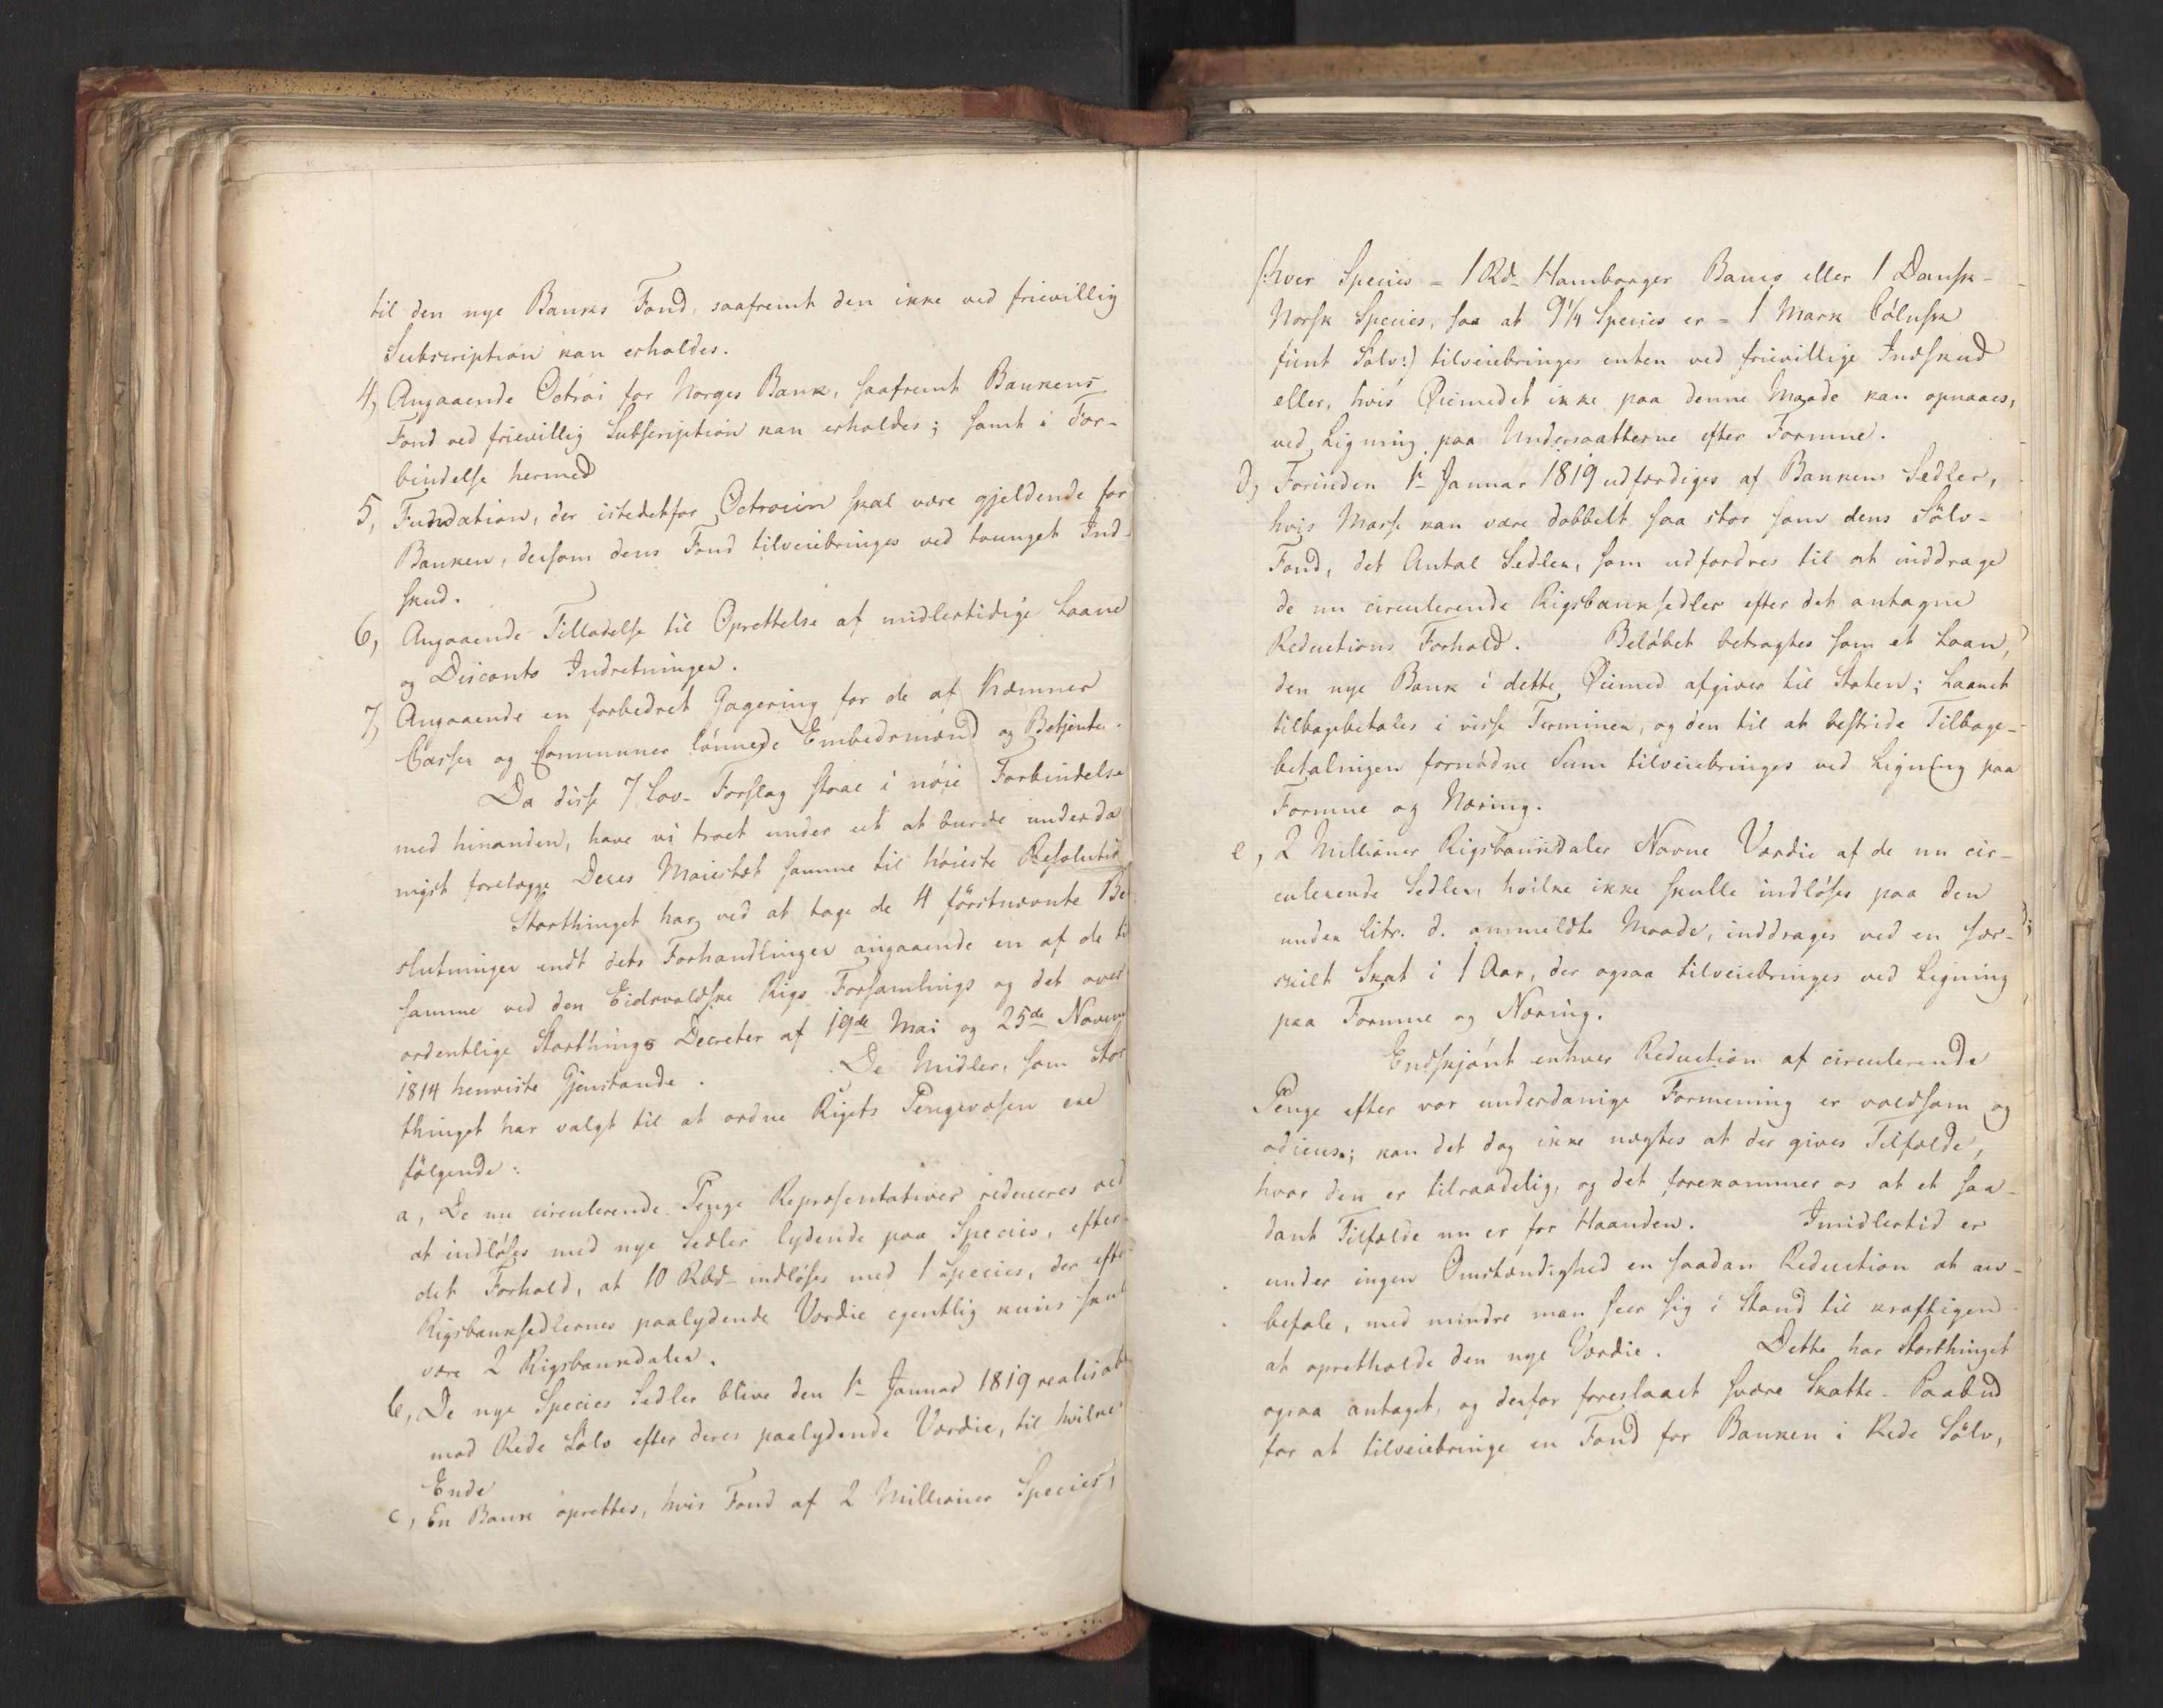 til den nye Banks Fond, saafremt den ikke ved frievillig
Subscription kan erholdes.
4, Angaaende Octroi for Norges Bank, saafremt Bankens
Fond ved frievillig Subscription kan erholdes; samt i For-
bindelse hermed
5, Fundation, der istedetfor Octroien skal være gjeldende for
Banken, dersom dens Fond tilveiebringes ved tvunget Ind-
skud.
6, Angaaende Tilladelse til Oprettelse af midlertidige Laane
og Disconto Indretninger.
7, Angaaende en forbedret Gagering for de af Kæmner
Casser og Communer lönnede Embedsmænd og Betjente.
Da disse 7 Lov-Forslag staae i nöie Forbindelse
med hinanden, have vi troet under eet at burde underda
nigst forelægge Deres Maiestæt samme til höieste Resolution
Storthinget har, ved at tage de 4 förstnævnte Be
slutninger endt dets Forhandlinger angaaende en af de til
samme ved den Eidsvoldske Rigs Forsamlings og det over
ordentlige Storthings Decreter af 19de Mai og 25de Novem
1814 henviste Gjenstande. De Midler, som Stor
thinget har valgt til at ordne Rigets Pengevæsen ere
fölgende:
a, De nu circulerende Penge Repræsentativer reduceres ved
at indlöses med nye Sedler lydende paa Species, efter
det Forhold, at 10 Rbd indlöses med 1 Species, der efter
Rigsbanksedlernes paalydende Værdie egentlig kuns skul
være 2 Rigsbankdaler.
b, De nye Species Sedler blive den 1te Januar 1819 realisable
mod Rede Sölv efter deres paalydende Værdie, til hvilken
Ende
c, En Bank oprettes, hvis Fond af 2 Millioner Species,
(:hver Species = 1 Rd Hamborger Banco eller 1 Dansk-
Norsk Species, saa at 9¼ Species er = 1 Mark Cölnsk
fiint Sölv:) tilveiebringes enten ved frievillige Indskud
eller, hvis Öiemedet ikke paa denne Maade kan opnaaes,
ved Ligning paa Undersaatterne efter Formue.
d, Forinden 1te Januar 1819 udfærdiges af Bankens Sedler,
hvis Masse kan være dobbelt saa stor som dens Sölv-
Fond, det Antal Sedler, som udfordres til at inddrage
de nu circulerende Rigsbanksedler efter det antagne
Reductions Forhold. Belöbet betragtes som et Laan,
den nye Bank i dette Öiemed afgiver til Staten; Laanet
tilbagebetales i visse Terminer, og den til at bestride Tilbage-
betalingen fornödne Sum tilveiebringes ved Ligning paa
Formue og Næring.
e, 2 Millioner Rigsbankdaler Navne Værdie af de nu cir-
culerende Sedler, hvilke ikke skulle indlöses paa den
under litr. d. anmeldte Maade, inddrages ved en sær-
skilt Skat i 1 Aar, der ogsaa tilveiebringes ved Ligning
paa Formue og Næring.
Endskjönt enhver Reduction af circulerende
Penge efter vor underdanige Formening er voldsom og
odieus; kan det dog ikke nægtes at der gives Tilfælde,
hvor den er tilraadelig, og det forekommer os at et saa-
dant Tilfælde nu er for Haanden. Imidlertid er
under ingen Omstændighed en saadan Reduction at an-
befale, med mindre man seer sig i Stand til kraftigen
at opretholde den nye Værdie. Dette har Storthinget
ogsaa antaget, og derfor foreslaaet svære Skatte-Paabud
for at tilveiebringe en Fond for Banken i Rede Sölv,